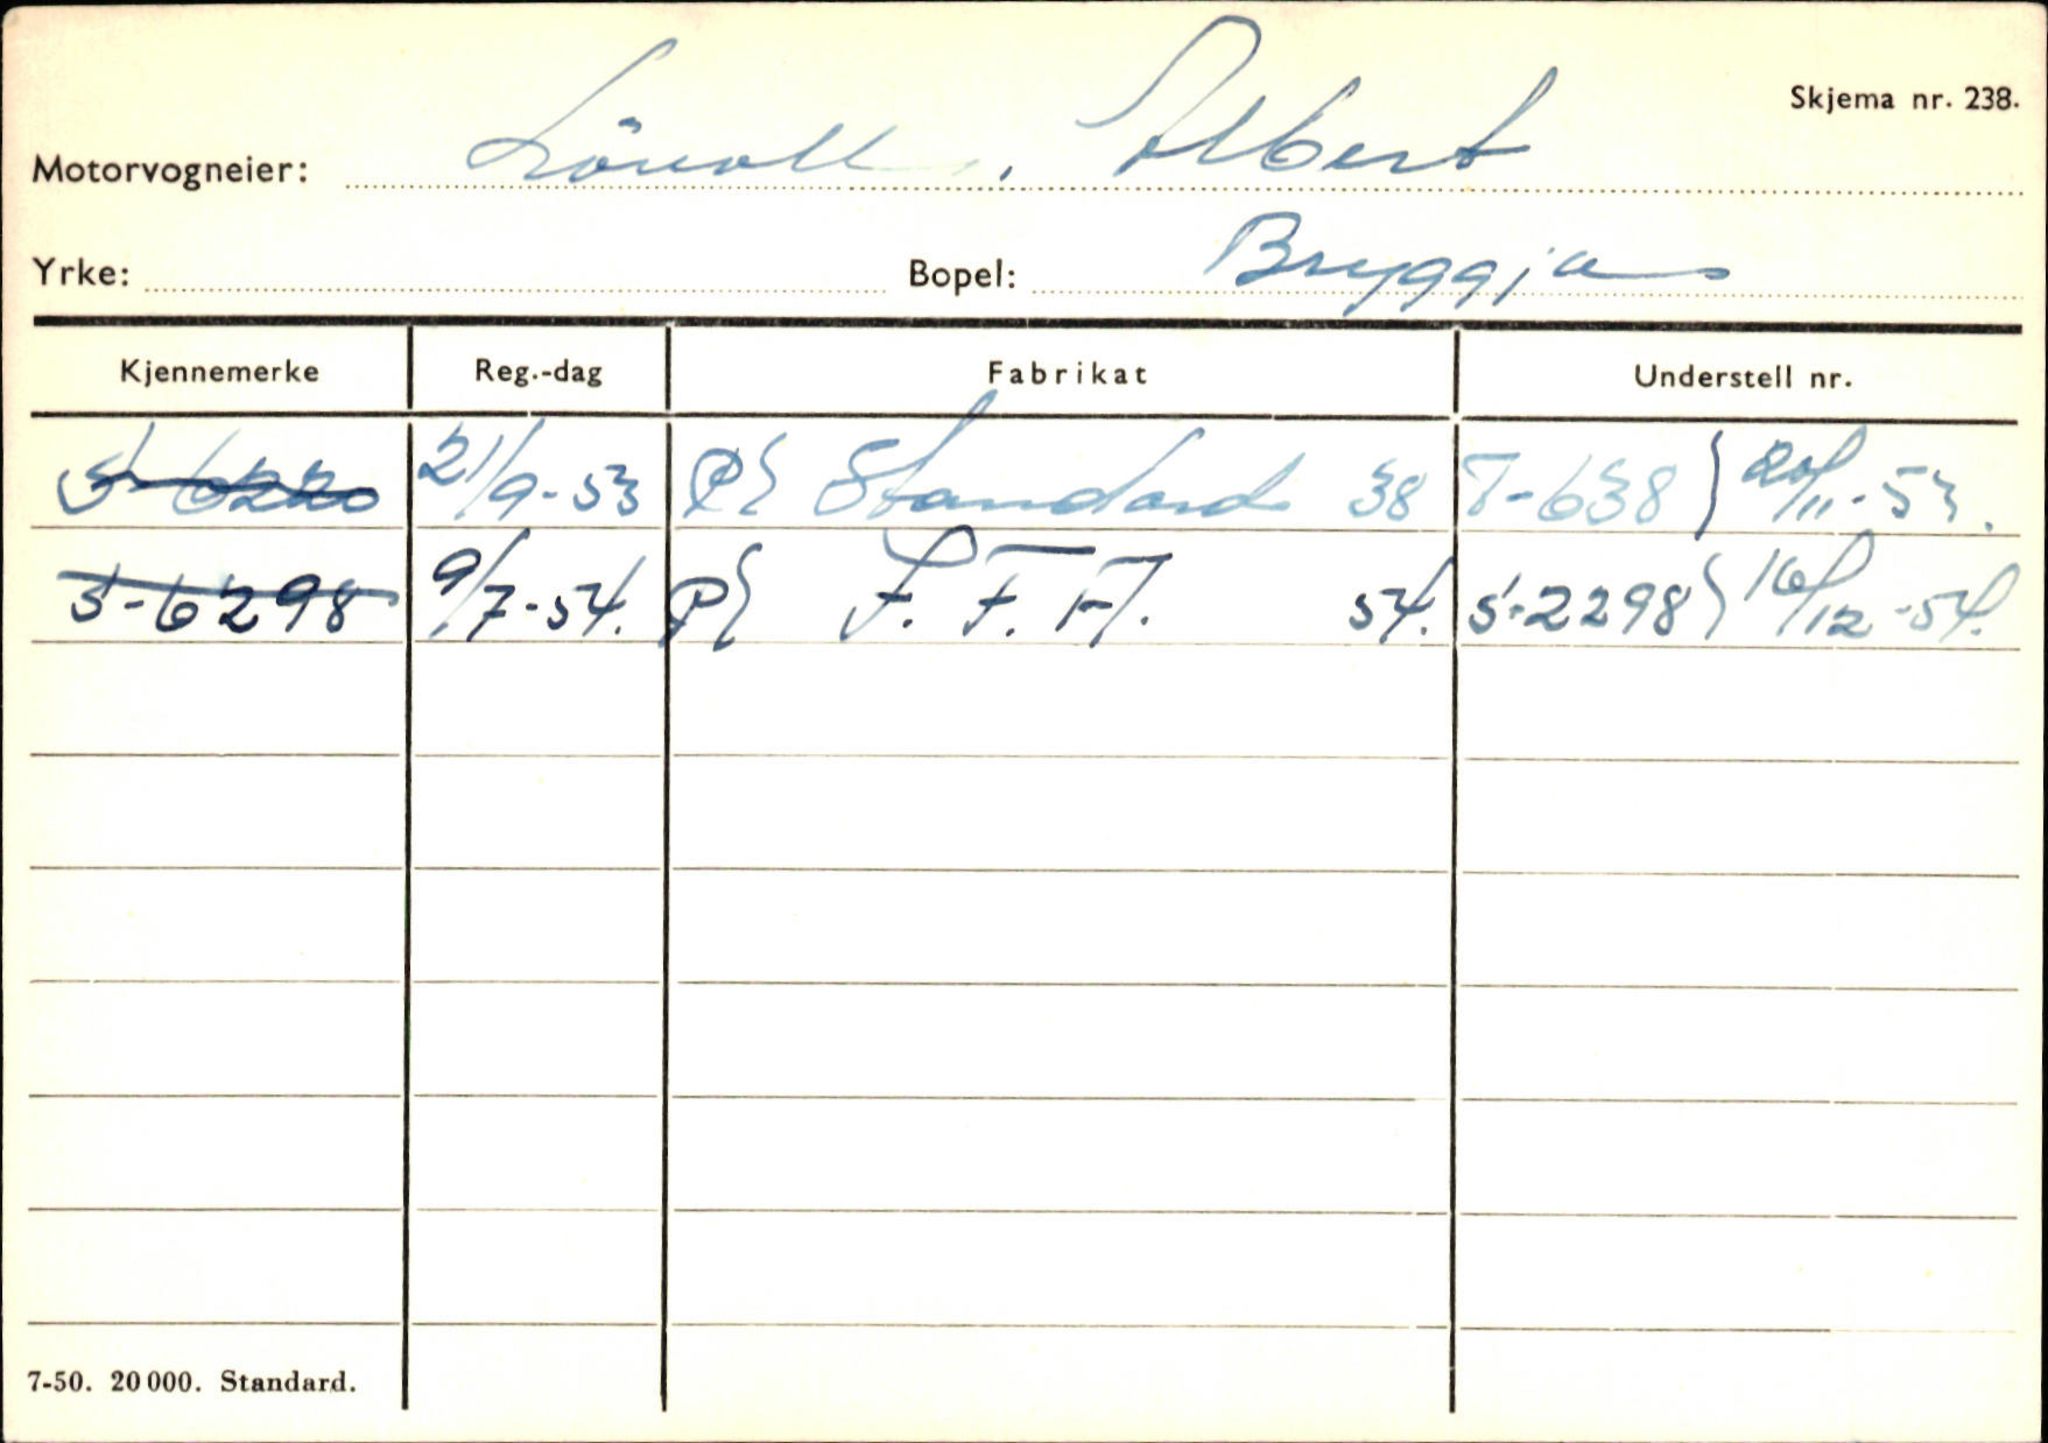 Skjema nr. 238.
Motorvogneier: Lövoll, Albert
Yrke: Bopel: Bryggja
Kjennemerke Reg.-dag Fabrikat Understell nr.
S-6220 21/9-53 P{ Standard 38 T-638 } 20/11-53.
S-6298 9/7-54. P{ F. F. F. 54. S-2298 } 16/12-54.
7-50. 20 000. Standard.